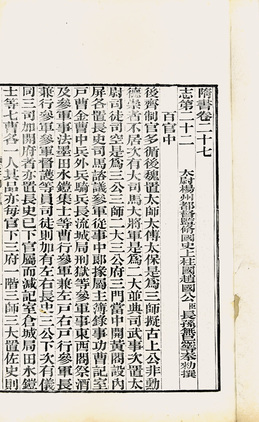 隋書卷二十七
志第二十二
太尉揚州都督監修國史上柱國趙國公臣長孫無忌等奉勅撰
百官中
後齊制官多循後魏置太師太傅太保是爲三師擬古上公非勳
德崇者不居次有大司馬大將軍是爲二大並典司武事次置太
尉司徒司空是爲三公三師二大三公府三門當中開黃閤設內
屏各置長史司馬諮議參軍從事中郎掾屬主簿錄事功曹記室
戶曹金曹中兵外兵騎兵長流城局刑獄等參軍事東西閤祭酒
及參軍事法墨田水鎧集士等曹行參軍兼左戶右戶行參軍長
兼行參軍參軍督護等員司徒則加有左右長史三公下次有儀
同三司加開府者亦置長史已下官屬而減記室倉城局田水鎧
士等七曹各一人其品亦每官下三府一階三師二大置佐史則